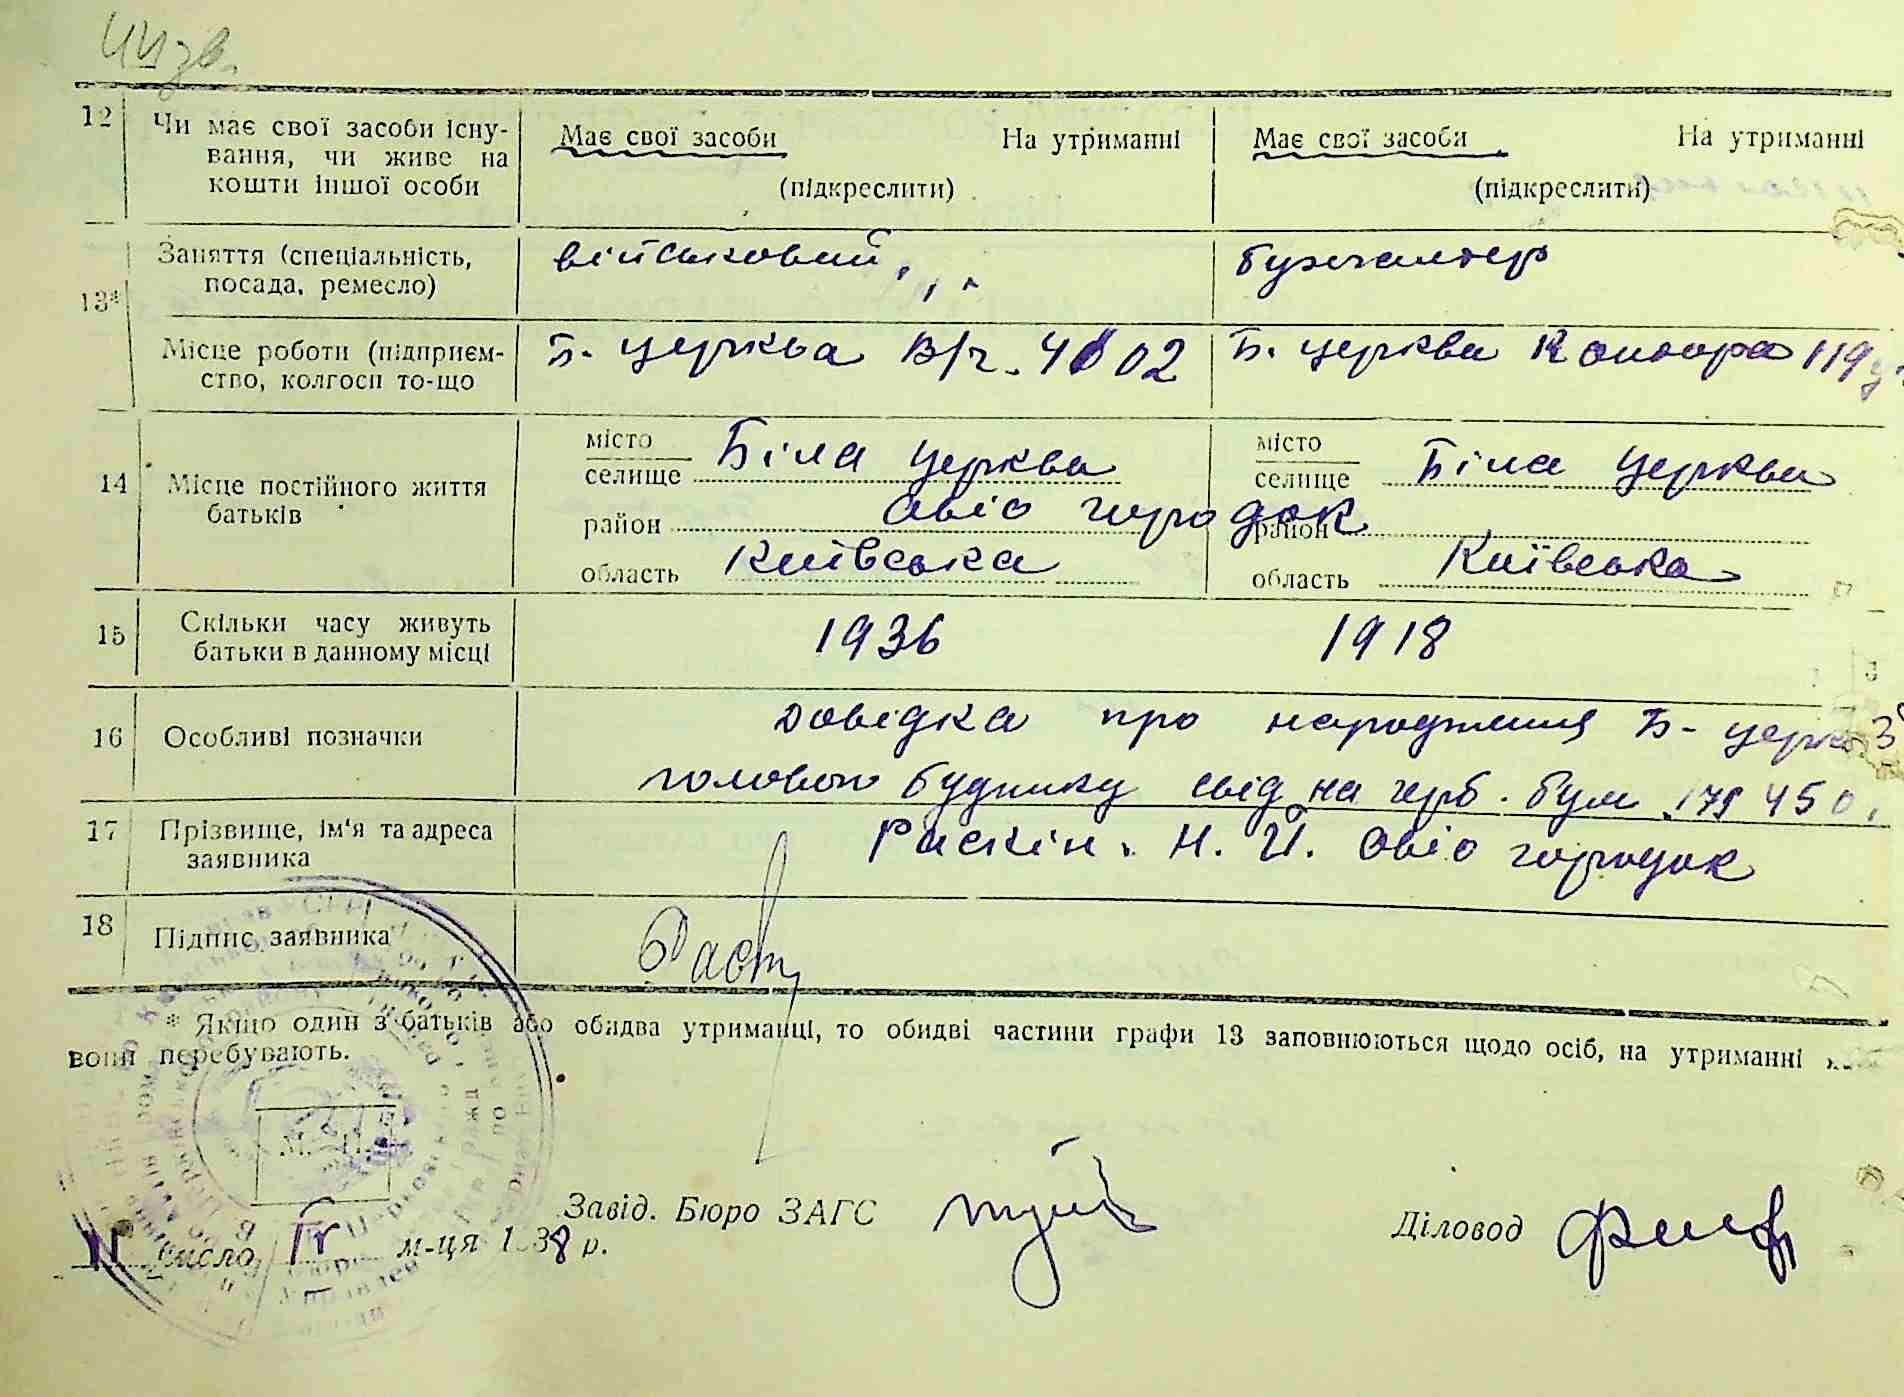 12 Чи має свої засоби існу-
вання, чи живе на
кошти іншої особи
Має свої засоби На утриманні
(підкреслити)
Має свої засоби На утриманні
(підкреслити)
13* Заняття (спеціальність,
посада, ремесло)
військовий
бухгалтер
Місце роботи (підприєм-
ство, колгосп то-що
Б. церква В/ч. 4802
Б. церква Контора 119
14 Місце постійного життя
батьків
місто
селище Біла церква
район авіо городок
область Київська
місто
селище Біла церква
район
область Київська
15 Скільки часу живуть
батьки в данному місці
1936 1918
16 Особливі позначки
Довідка про народження Б- церк
пологового будинку свід на герб. бум. 179450.
17 Прізвище, ім'я та адреса
заявника
Раскін. Н. Й. Авіо городок
18 Підпис заявника
* Якщо один з батьків або обидва утриманці, то обидві частини графи 13 заповнюються щодо осіб, на утриманні
вони перебувають.
М. П.
Завід. Бюро ЗАГС
Діловод
11 число IV м-ця 1938 р.